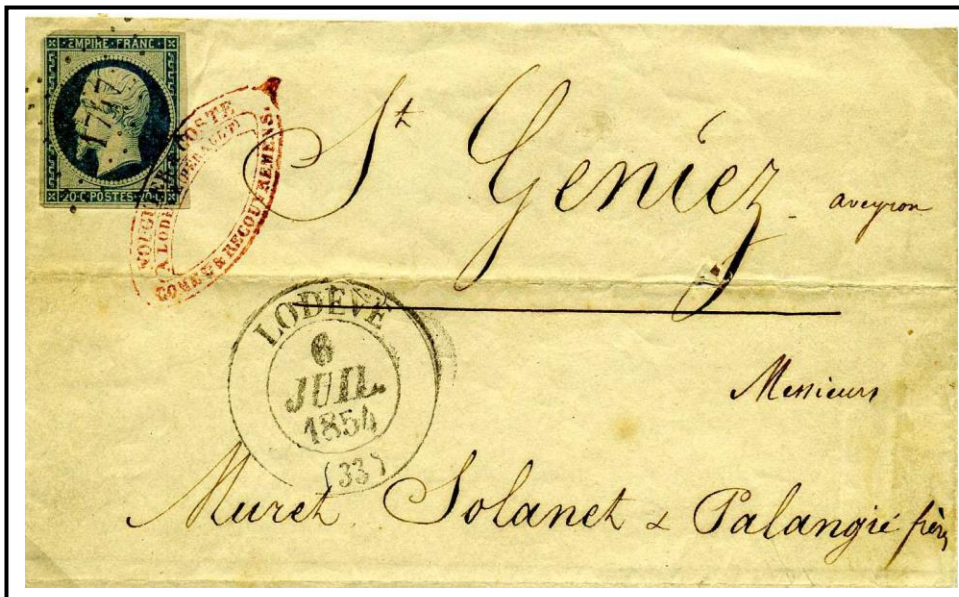 EMPIRE FRANC
1717
20·C·POSTES·20·C
COSTE
A LODÈVE (HÉRAULT)
& RECOUVREMENS.
St Geniez
aveyron
LODEVE
6
JUIL.
1854
(33)
Messieurs
Muret Solanet & Palangié frères